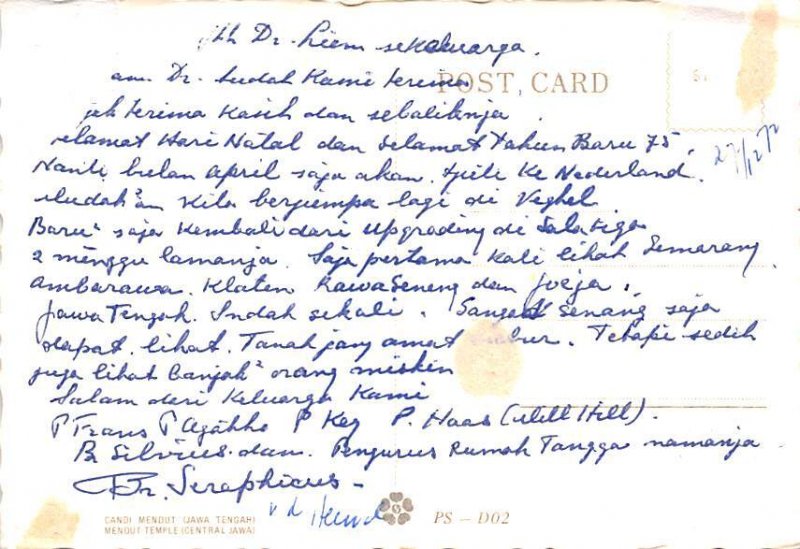 Dr. Liem sekeluarga.
Dr. Sudah Kami terima
POST CARD
terima Kasih dan sebaliknja.
Selamat Hari Natal dan Selamat Tahun Baru 75.
27/12 72
Nanti bulan april saja akan tjuti Ke Nederland.
Mudah²an Kita berjumpa lagi di Veghel.
Baru² saja Kembali dari Upgrading di Salatiga
2 minggu lamanja. Saja pertama Kali lihat Semarang
ambarawa. Klaten Rawaseneng dan Jogja.
Jawa Tengah. Indah sekali. Sangat Senang saja
dapat lihat. Tanah jang amat Tetapi sedih
juga lihat banjak² orang miskin
Salam dari Keluarga Kami
P Frans P Agatho P Key P. Haas (Mill Hill).
Br Silvius dan Pengurus Rumah Tangga namanja
Br. Seraphicus
v d
CANDI MENDUT (JAWA TENGAH)
MENDUT TEMPLE (CENTRAL JAWA)
PS – D02